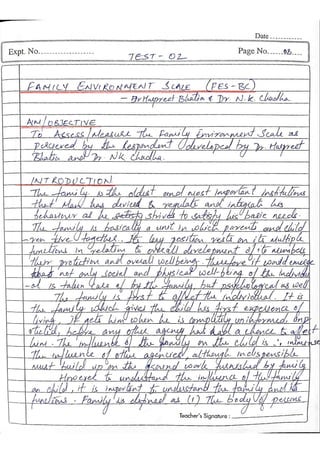 Date
Expt. No.
Page No.
TEST - 02
FAMILY ENVIRONMENT SCALE (FES-BC)
- Dr Harpreet Bhatia & Dr N.K. Chadha
AIM/OBJECTIVE
To Assess/Measure the Family Environment Scale as
perceived by the Respondent developed by Dr Harpreet
Bhatia and Dr NK Chadha.
INTRODUCTION
The family is the oldest and most important institutions
that Man has devised to regulate and integrate his
behaviour as he strives to satisfy his basic needs.
The family is basically a unit in which parents and child
-ren live together. Its key position rests on its multiple
functions in relation to overall development of its members
their protection and overall wellbeing. Therefore it would emerge
that not only social and physical well-being of the individu
-al is taken care of by the family, but psychological as well
The family is first to affect the individual. It is
the family which gives the child his first experience of
living. It gets him when he is completely uninformed, unp
before any other agency has had a chance to affect
him. The influence of the family on the child is ∴ immense
The influence of other agencies, although indispensible
must build upon the ground work furnished by family
However to understand the influence of the family
on child, it is important to understand the family and its
functions. Family is defined as (1) The body of persons
Teacher's Signature :